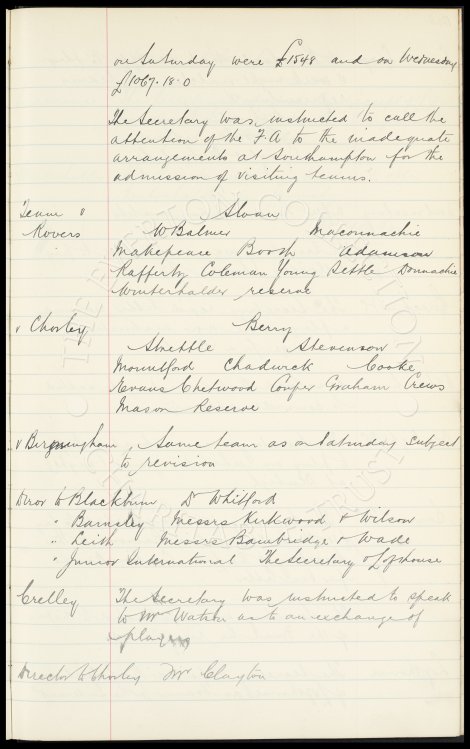 on Saturday were £1548 and on Wednesday
£1067.18.0
The Secretary was instructed to call the
attention of the F.A to the inadequate
arrangements at Southampton for the
admission of visiting teams.
Team v Sloan
Rovers W Balmer Maconnachie
Makepeace Booth Adamson
Rafferty Coleman Young Settle Donnachie
Winterhalder reserve
v Chorley Berry
Strettle Stevenson
Mountford Chadwick Cooke
Evans Chetwood Couper Graham Crews
Mason Reserve
v Birmingham. Same team as on Saturday subject
to revision
Diror to Blackburn Dr Whitford
" Barnsley Messrs Kirkwood & Wilson
" Leith Messrs Bainbridge & Wade
" Junior International The Secretary & Lofthouse
Crelley The Secretary was instructed to speak
to Mr Watson as to an exchange of
players
Director to Chorley Mr Clayton
THE EVERTON COLLECTION
CHARITABLE TRUST